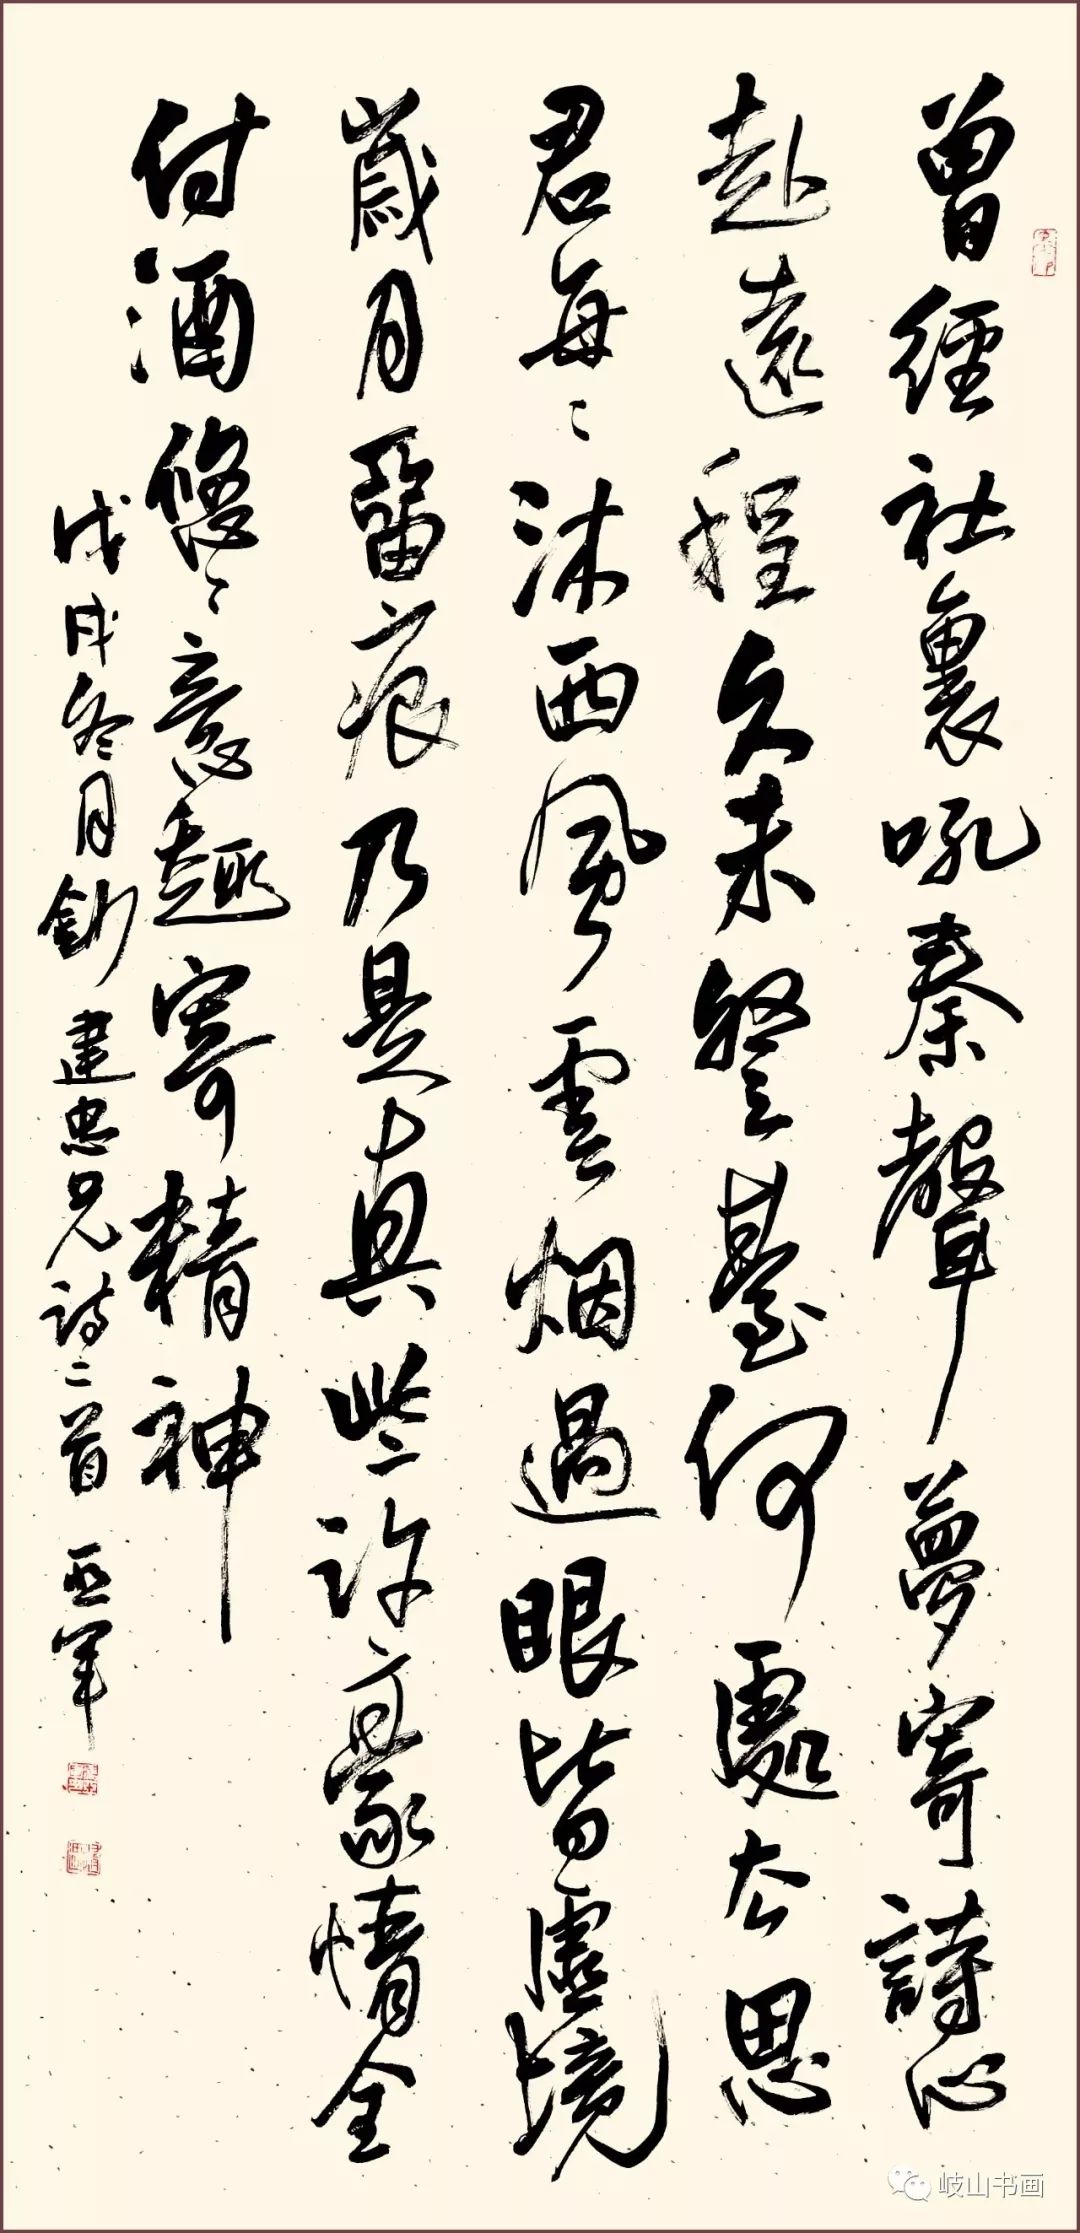 曾經社裏吼秦聲夢寄詩心
赴遠程久未登臺何處去思
君每々沐西風雲烟過眼皆虛境
歲月留痕乃是真些許豪情全
付酒悠々意趣寄精神
戊戌冬月鈔建忠兄詩二首亞軍
岐山书画